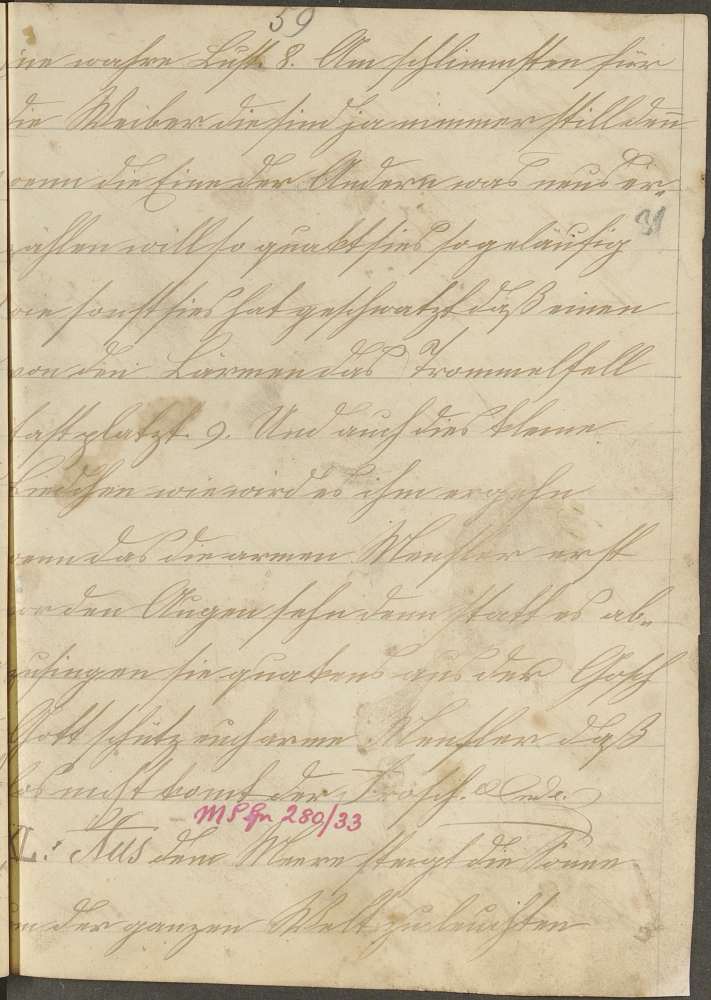 59
ine wahre Lust. 8. Am schlimmsten für
die Weiber die sind ja nimmer still den̄
wenn die Eine der Andern was neus er-
31
zählen will so quakt sies so geläufig
wie sonst sies hat geschwatzt daß einen
von den Lärmen das Trommelfell
fast platzt. 9. Und auch dies kleine
Liedchen wie wird es ihm ergehn
wenn das die armen Menschen erst
vor den Augen sehn denn statt es ab-
zusingen sie quakens aus der Gosch
Gott schütz euch arme Menschen daß
los nicht komt der Frosch. Ende.
MS Gn 280/33
XL: Aus dem Meere steigt die Sonne
um der ganzen Welt zu leuchten